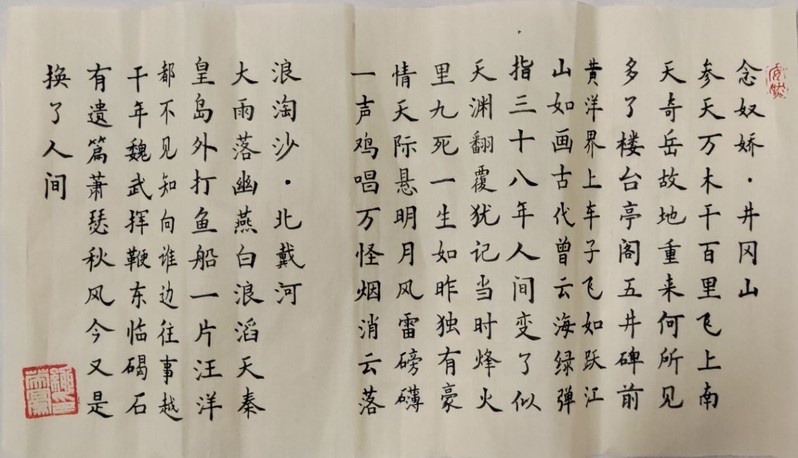 念奴娇·井冈山
参天万木千百里飞上南
天奇岳故地重来何所见
多了楼台亭阁五井碑前
黄洋界上车子飞如跃江
山如画古代曾云海绿弹
指三十八年人间变了似
天渊翻覆犹记当时烽火
里九死一生如昨独有豪
情天际悬明月风雷磅礴
一声鸡唱万怪烟消云落
浪淘沙·北戴河
大雨落幽燕白浪滔天秦
皇岛外打鱼船一片汪洋
都不见知向谁边往事越
千年魏武挥鞭东临碣石
有遗篇萧瑟秋风今又是
换了人间